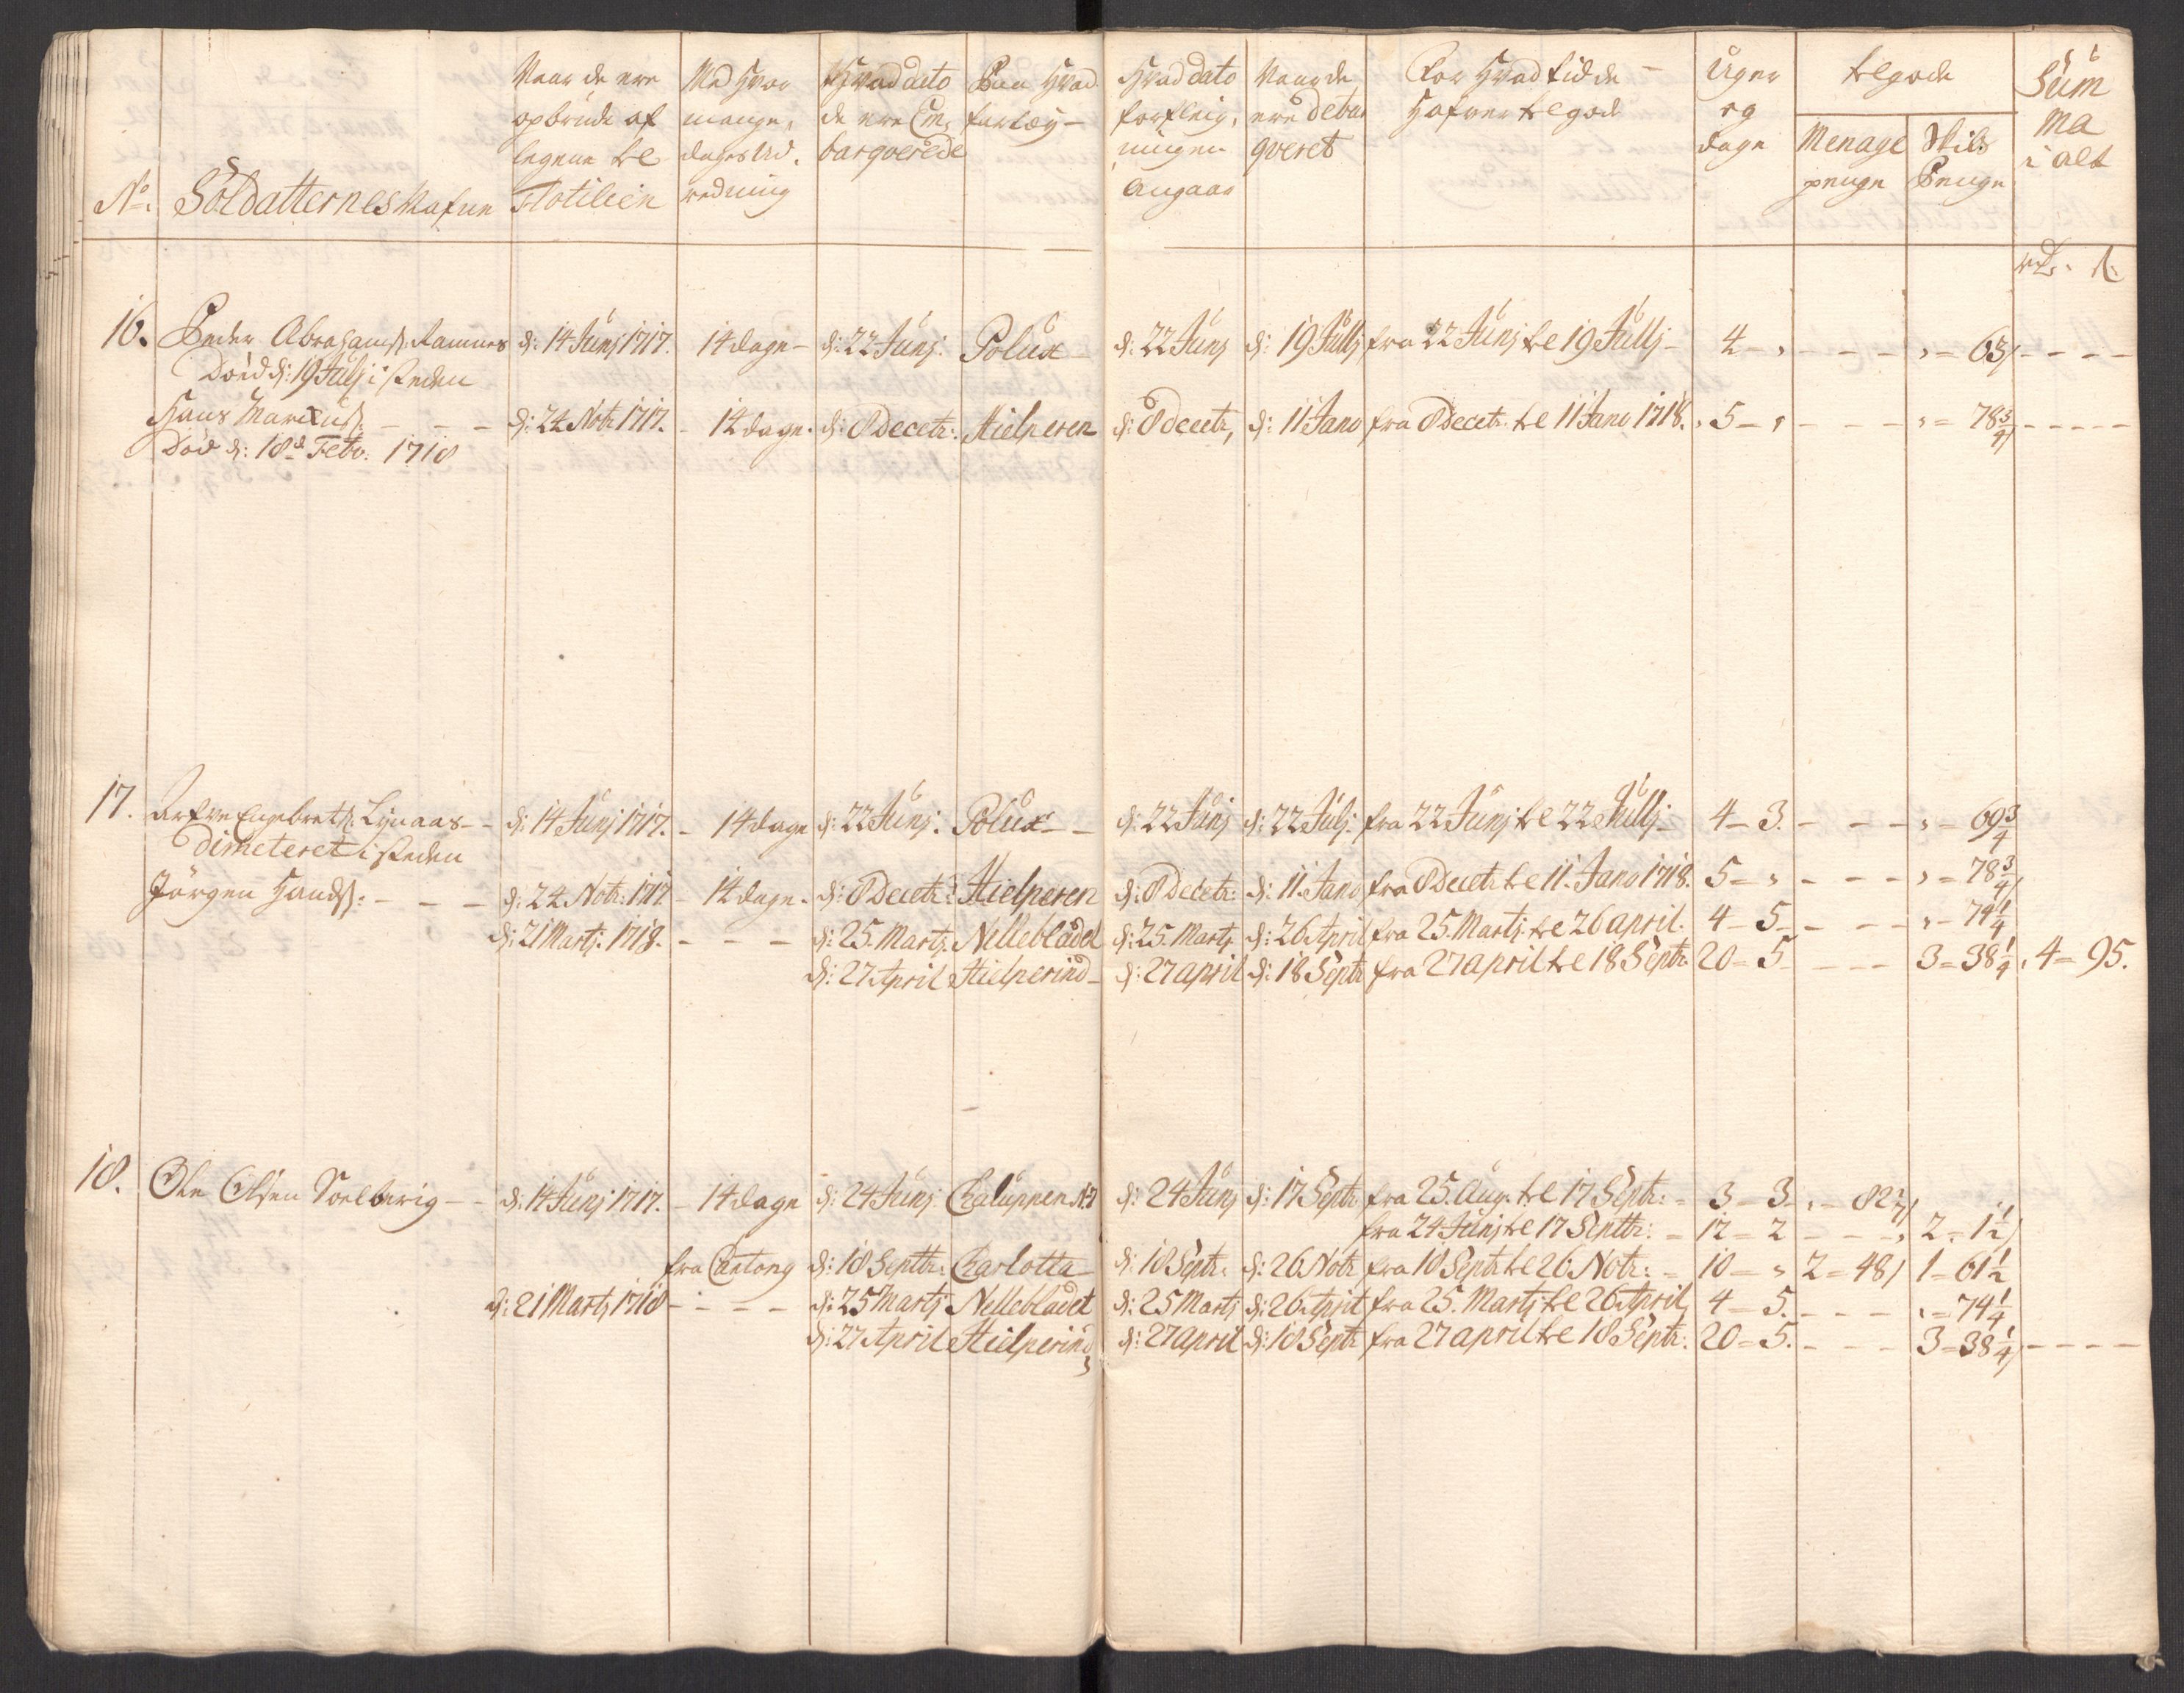 No. Soldatternes Nafne
Naar de ere opbrudt af legene til Flotilien
Med Hvor mange dages Udredning
Hvad dato de ere Em,barqverede
Paa Hvad fartøy
Hvad dato forpleigningen Angaar
Naar de ere debarqveret
For Hvad tid de Hafver tilgode
Uger og dage
tilgode
Menage penge
Skibs Penge
Summa i alt
rdr. s:
16. Peder Abrahams: Ramnes d: 14 Junj 1717. 14 dage d: 22 Junj: Polux d: 22 Junj d: 19 Jullj fra 22 Junj til 19 Jullj 4 - , - - - , = 63 - - - -
Döed d: 19 Julj i steden
Hans Marcus: - - - d: 24 Notr 1717. - 14 dage. d: 8 Decetr: Hielperen d: 8 decetr, d: 11 Jano fra 8 Decetr. til 11 Jano 1718. 5 - , - - - , = 78 3/4 - - - -
Död d: 18d Febr. 1718
17. Engebrets: Lynaas - - d: 14 Junj 1717. - 14 dage d: 22 Junj. Polux - - d: 22 Junj d: 22 Julj. fra 22 Junj til 22 Jullj 4 - 3. - - - , = 69 3/4
Dimeteret i steden
Jörgen Hands: - - - d: 24 Notr: 1717 - 14 dage. d: 8 Decetr: Hielperen d: 8 Decetr: d: 11. Jano fra 8 Decetr til 11. Jano 1718. 5 = , - - - , = 78 3/4
d: 21 Martj: 1718. - - - d: 25. Martj. Nellebladet d: 25. Martj d: 26 April fra 25. Martj. til 26 april. 4 - 5 - - - , - 74 1/4
d: 27 April Hielperind d: 27 april d: 18 Septr fra 27 april til 18 Septr. 20 = 5 - - - 3 = 38 1/4 , 4 = 95.
18. Ole Olsen Soelberig - - d: 14 Junj 1717. - 14 dage d: 24 Junj Chaluppen No 7 d: 24 Junj d: 17 Septr fra 25. Aug. til 17 Septr: = 3 - 3 - , = 82 2/7
fra 24 Junj til 17 Septtr: = 12 = 2 - - - , 2 = 1 1/2
fra Cantong d: 18 Septtr: Charlotta d: 18 Septr: d: 26 Notr fra 18 Septr til 26 Notr: = 10 = , 2 = 48 1 = 61 1/2
d: 21 Martj 1718 - - - - d: 25 Martj Nellebladet d: 25 Martj d: 26 April fra 25. Martj til 26 April, 4 = 5. - - - , = 74 1/4
d: 27 April Hielperind d: 27 april d: 18 Septr fra 27 april til 18 Septr: 20 = 5. - - - 3 = 38 1/4 - - - -